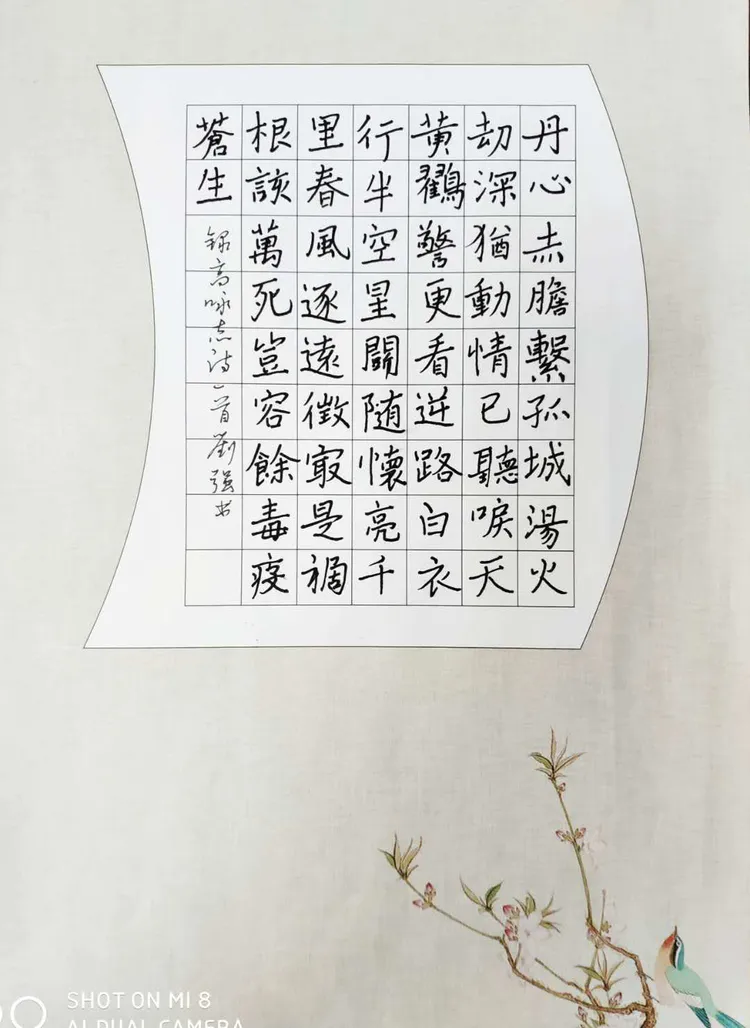 丹心赤膽繫孤城湯火
劫深猶動情已聽唳天
黄鸛警更看逆路白衣
行半空星闢随懷亮千
里春風逐遠徵寂是禍
根該萬死豈容餘毒疫
蒼生
録高咏志詩一首劉强书
SHOT ON MI 8
AI DUAL CAMERA